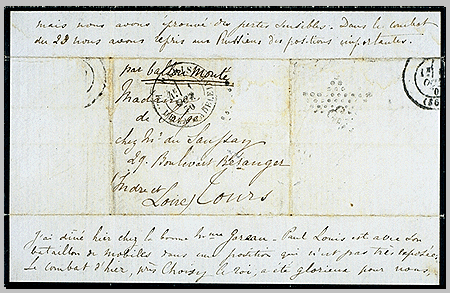 mais nous avons éprouvé des pertes sensibles. Dans le combat
du 29 nous avons repris aux Prussiens des positions importantes.
par ballon Monté
Madame
de
chez Mr. du Saussay
29. Boulevart Béranger
Indre et
Loire Tours
J'ai dîné hier chez la bonne Mme Goreau - Paul Louis est avec son
bataillon de Mobiles dans une position qui n'est pas très exposée.
Le combat d'hier, près Choisy le roi, a été glorieux pour nous,